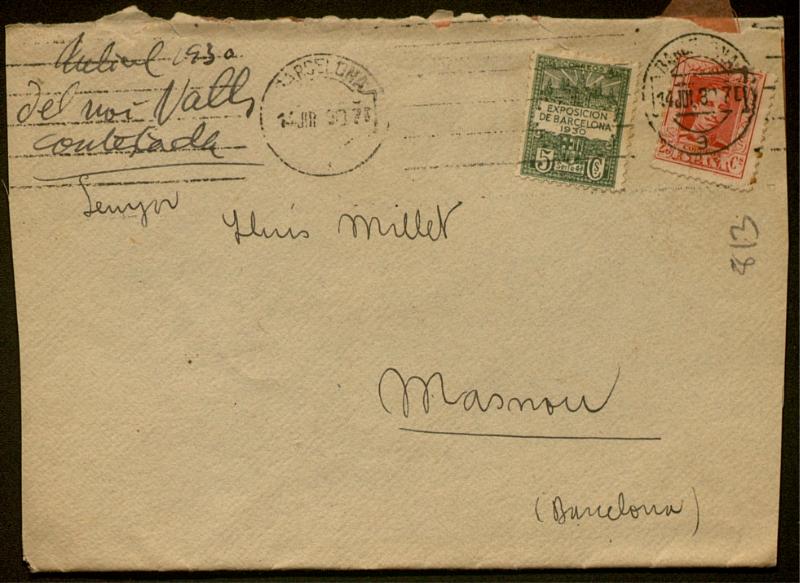 Juliol 1930
del noi Valls
contestada
BARCELONA
14 JUL 30 7T
EXPOSICION
DE BARCELONA
1930
5 Cs
BARCELONA
14 JUL 30 7T
3
25 Cs
Senyor Lluís Millet
Masnou
(Barcelona)
813